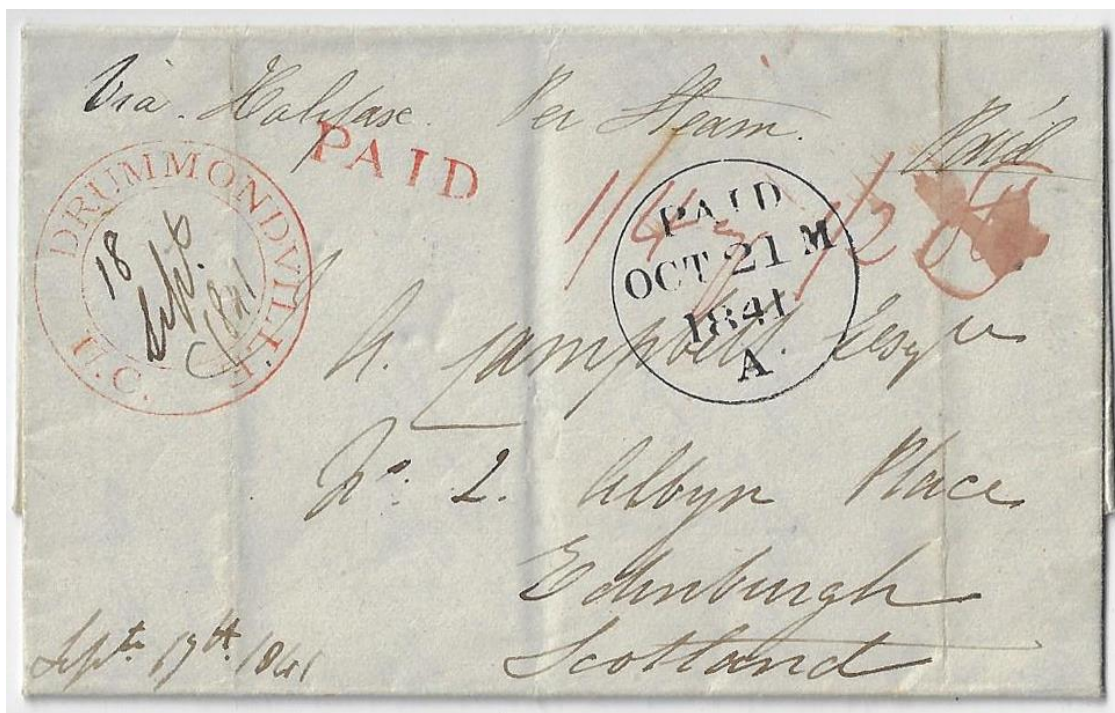 Via. Halifax. Per Steam. Paid
PAID
DRUMMONDVILLE
U.C.
18
Sept. 6
1841
1/4 1/2
PAID
OCT 21 M
1841
A
A. Campbell. Esqre
No. 2. Albyn Place
Edinburgh
Scotland
Septr. 17th. 1841